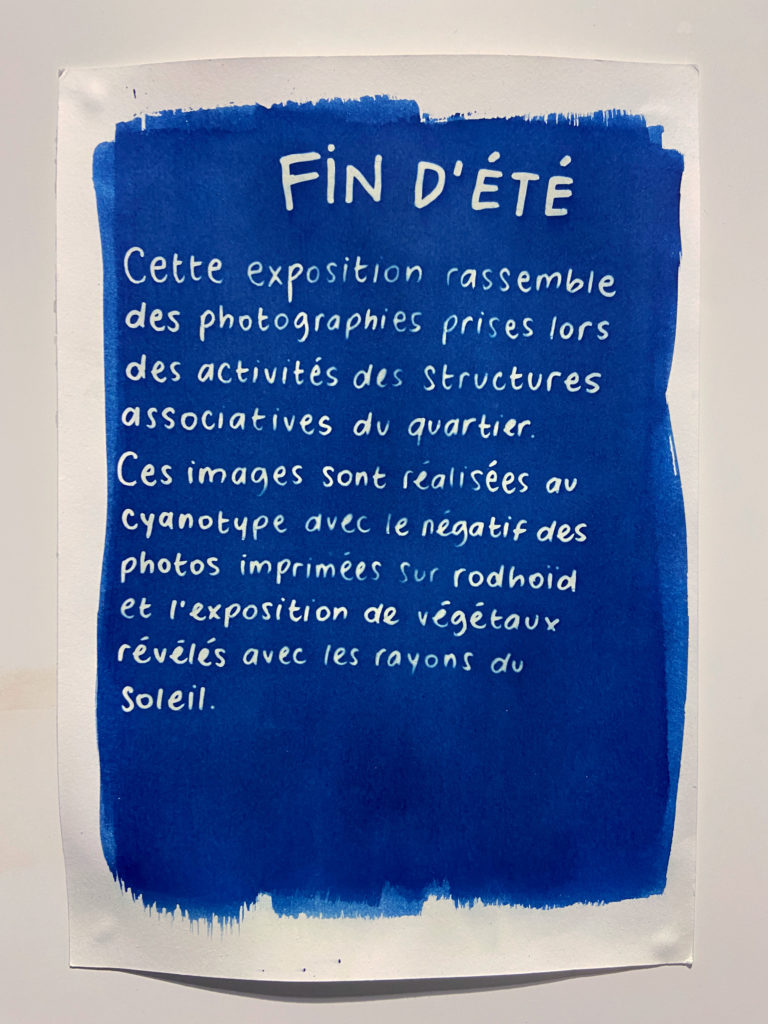 FiN D'ÉTÉ
Cette exposition rassemble
des photographies prises lors
des activités des structures
associatives du quartier.
Ces images sont réalisées au
cyanotype avec le négatif des
photos imprimées sur rodhoïd
et l'exposition de végétaux
révélés avec les rayons du
Soleil.